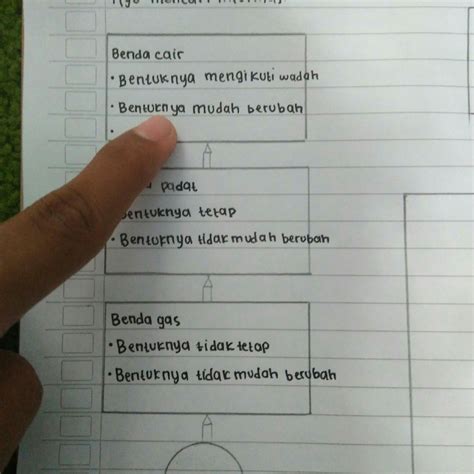 Benda cair
• Bentuknya mengikuti wadah
• Bentuknya mudah berubah
•
padat
Bentuknya tetap
• Bentuknya tidak mudah berubah
Benda gas
• Bentuknya tidak tetap
• Bentuknya tidak mudah berubah